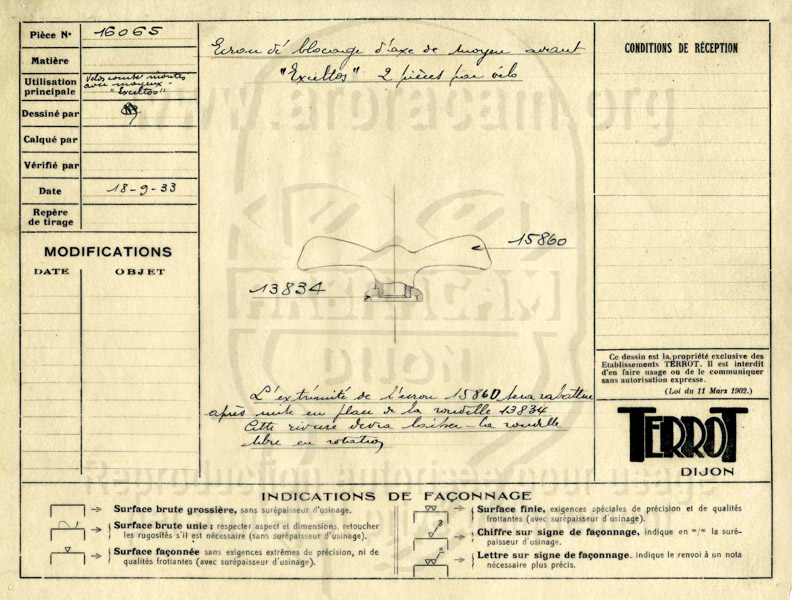 Pièce N° 16065
Matière
Utilisation principale
Vélos course montés
avec moyeux
"Exceltoo"
Dessiné par
Calqué par
Vérifié par
Date 18-9-33
Repère
de tirage
MODIFICATIONS
DATE OBJET
Ecrou de blocage d'axe de moyeu avant
"Exceltoo" 2 pièces par vélo
15860
13834
L'extrémité de l'écrou 15860 sera rabattue
après mise en place de la rondelle 13834
Cette rivure devra laisser la rondelle
libre en rotation
CONDITIONS DE RÉCEPTION
Ce dessin est la propriété exclusive des
Etablissements TERROT. Il est interdit
d'en faire usage ou de le communiquer
sans autorisation expresse.
(Loi du 11 Mars 1902.)
TERROT
DIJON
INDICATIONS DE FAÇONNAGE
Surface brute grossière, sans surépaisseur d'usinage.
Surface brute unie; respecter aspect et dimensions, retoucher
les rugosités s'il est nécessaire (sans surépaisseur d'usinage).
Surface façonnée sans exigences extrêmes de précision, ni de
qualités frottantes (avec surépaisseur d'usinage).
Surface finie, exigences spéciales de précision et de qualités
frottantes (avec surépaisseur d'usinage).
3
Chiffre sur signe de façonnage, indique en m/m la suré-
paisseur d'usinage.
a
Lettre sur signe de façonnage. indique le renvoi à un nota
nécessaire plus précis.
www.arbracam.org
ARBRACAM
DIJON
Reproduction autorisée pour usage